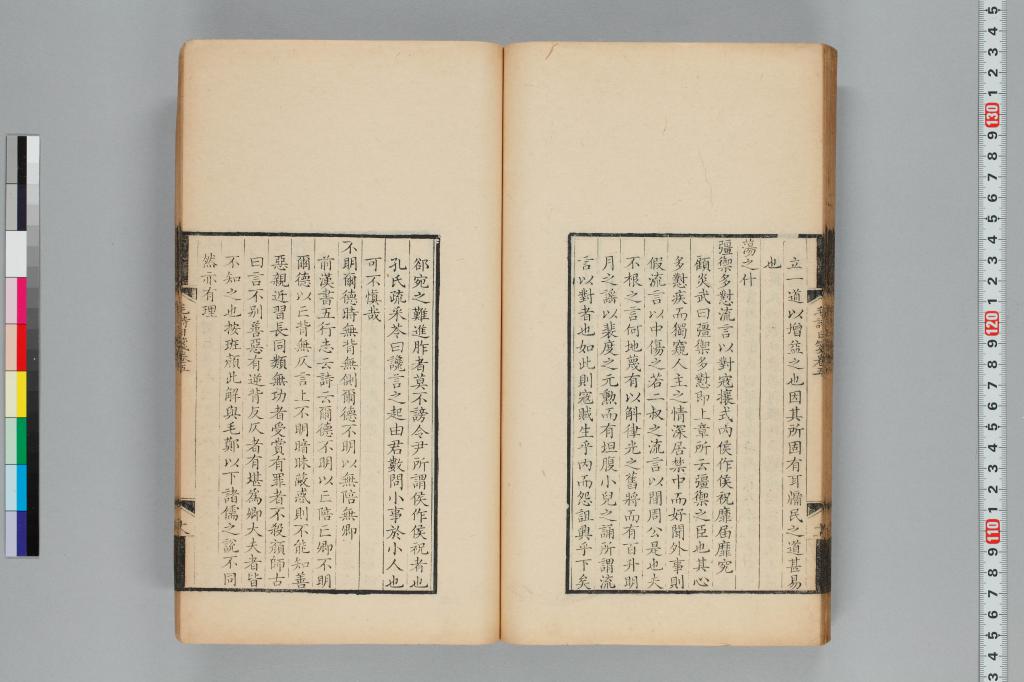 立一道以增益之也因其所固有耳牖民之道甚易
也
蕩之什
彊禦多懟流言以對寇攘式內侯作侯祝靡届靡究
顧炎武曰彊禦多懟即上章所云彊禦之臣也其心
多懟疾而獨窺人主之情深居禁中而好聞外事則
假流言以中傷之若二叔之流言以閒周公是也夫
不根之言何地蔑有以斛律光之舊將而有百升明
月之謠以裴度之元勲而有坦腹小兒之誦所謂流
言以對者也如此則寇賊生乎內而怨詛興乎下矣
郤宛之難進胙者莫不謗令尹所謂侯作侯祝者也
孔氏疏采苓曰讒言之起由君數問小事於小人也
可不慎哉
不明爾德時無背無側爾德不明以無陪無卿
前漢書五行志云詩云爾德不明以亡陪亡卿不明
爾德以亡背無仄言上不明暗昧蔽惑則不能知善
惡親近習長同類無功者受賞有罪者不殺顔師古
曰言不别善惡有逆背反仄者有堪爲卿大夫者皆
不知之也按班顔此解與毛鄭以下諸儒之說不同
然亦有理